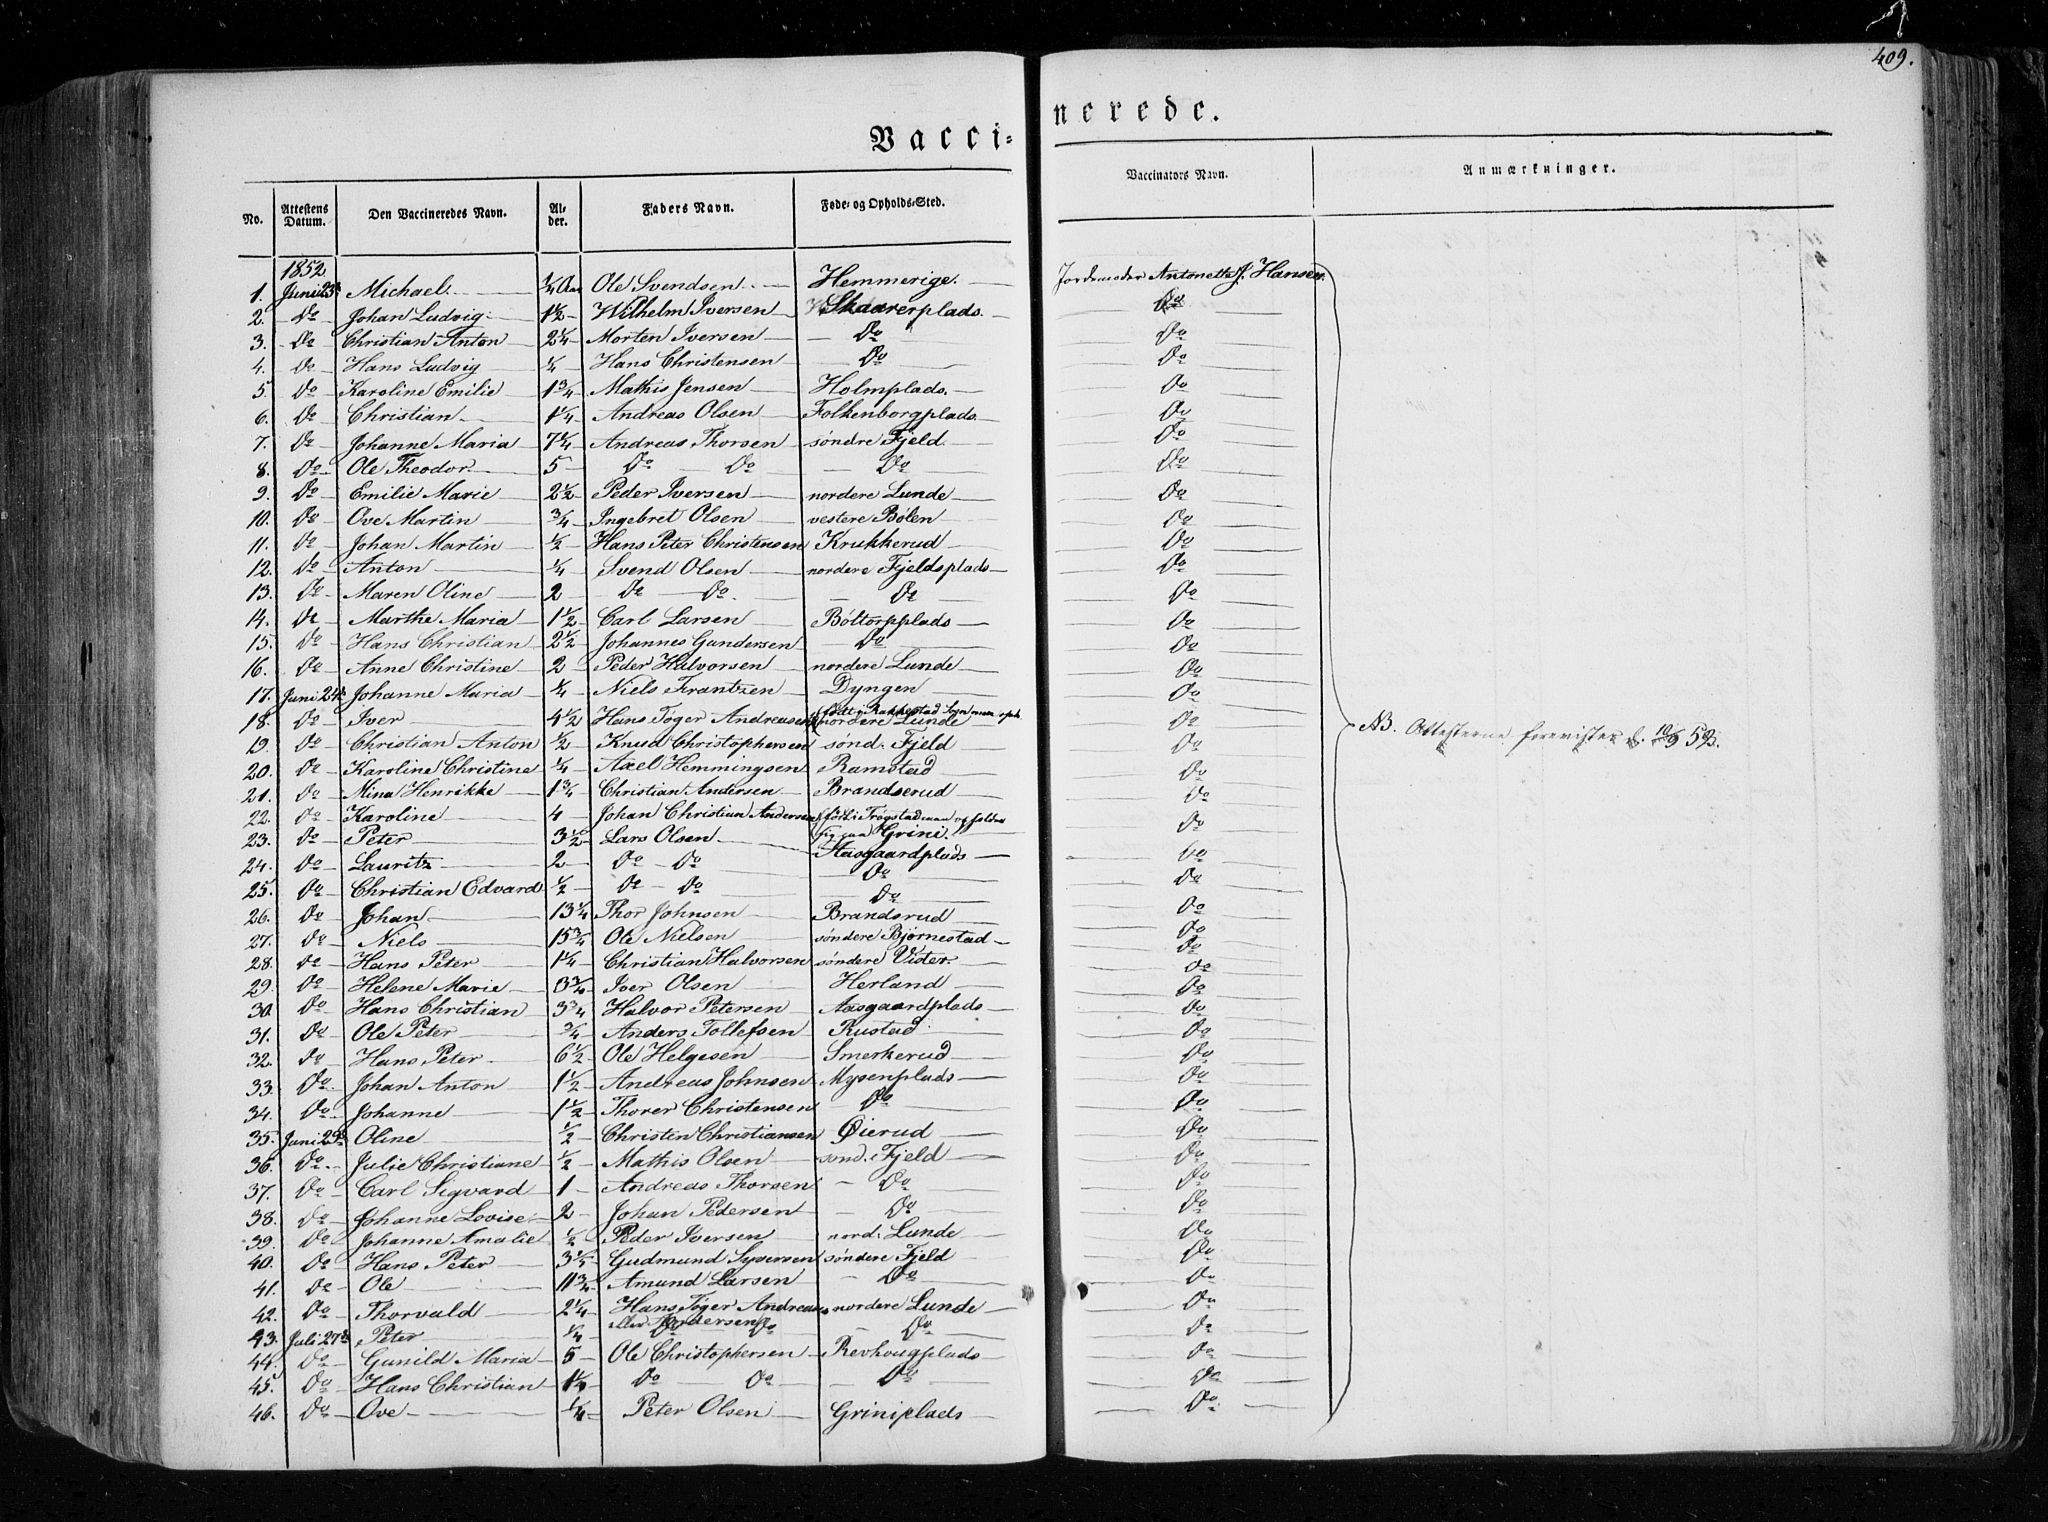 409.
Vacci- nerede.
No. Attestens Datum. Den Vaccineredes Navn. Al- der. Faders Navn. Føde- og Opholds-Sted. Vaccinators Navn. Anmærkninger.
1852.
1. Juni 23 Michael. 3/4 Aar Ole Svendsen Hemmerige. Jordemoder Antonette J. Hansen.
2. Do Johan Ludvig 1 1/2 Wilhelm Iversen Skaarerplads. Do
3. Do Christian Anton 2 1/4 Morten Iversen Do Do
4. Do Hans Ludvig 1/4 Hans Christensen Do Do
5. Do Karoline Emilie 1 3/4 Mathis Jensen Holmplads. Do
6. Do Christian 1 1/4 Andreas Olsen Folkenborgplads Do
7. Do Johanne Maria 7 1/4 Andreas Thorsen søndre Fjeld Do
8. Do Ole Theodor 5 Do Do Do Do
9. Do Emilie Marie 2 1/2 Peder Iversen nordere Lunde Do
10. Do Ove Martin 3/4 Ingebret Olsen vestere Bølen Do
11. Do Johan Martin 1/2 Hans Peter Christensen Krukkerud Do
12. Do Anton 1/4 Svend Olsen nordere Fjeldsplads Do
13. Do Maren Oline 2 Do Do Do Do
14. Do Marthe Maria 1 1/2 Carl Larsen Böltorpplads Do
15. Do Hans Christian 2 1/2 Johannes Gundersen Do Do
16. Do Anne Christine 2 Peder Halvorsen nordere Lunde Do
17. Juni 24 Johanne Maria 1/4 Niels Frantzen Dyngen Do
18. Do Iver 4 1/2 Hans Töger Andreasen (født i Rakkestad Sogn men oph. nordere Lunde Do
19. Do Christian Anton 1/2 Knud Christophersen sønd. Fjeld Do NB. Attesterne forevistes d. 10/9 52.
20. Do Karoline Christine 1/4 Axel Hemmingsen Ramstad Do
21. Do Mina Henrikke 1 3/4 Christian Andersen Brandserud Do
22. Do Karoline 4 Johan Christian Andersen (født i Trøgstad men opholder sig paa Grini. Do
23. Do Peter 3 1/2 Lars Olsen Aasgaardplads Do
24. Do Lauritz 2 Do Do Do Do
25. Do Christian Edvard 1/2 Do Do Do Do
26. Do Johan 13 1/4 Thor Johnsen Brandsrud Do
27. Do Niels 15 3/4 Ole Nielsen søndere Bjørnestad Do
28. Do Hans Peter 1 1/4 Christian Halvorsen søndere Vister Do
29. Do Helene Marie 3 3/4 Iver Olsen Herland Do
30. Do Hans Christian 3 3/4 Halvor Petersen Aasgaardplads Do
31. Do Ole Peter 3/4 Anders Tollefsen Rustad Do
32. Do Hans Peter 6 1/2 Ole Helgesen Smerkerud Do
33. Do Johan Anton 1 1/2 Andreas Johnsen Mysenplads Do
34. Do Johanne 1 1/2 Thorer Christensen Do Do
35. Juni 29 Oline 1/2 Christen Christiansen Øierud Do
36. Do Julie Christiane 1/2 Mathis Olsen sønd. Fjeld Do
37. Do Carl Sigvard 1 Andreas Thorsen Do Do
38. Do Johanne Lovise 2 Johan Pedersen Do Do
39. Do Johanne Amalie 1/2 Peder Iversen nord. Lunde Do
40. Do Hans Peter 3 1/2 Gudmund Syversen søndere Fjeld Do
41. Do Ole 11 3/4 Amund Larsen Do Do
42. Do Thorvald 2 1/4 Hans Töger Andreasen nordere Lunde Do
43. Juli 27 Peter 1/4 eller Andersen Do Do Do Do
44. Do Gunild Maria 5 Ole Christophersen Revhougplads Do
45. Do Hans Christian 1 1/2 Do Do Do Do
46. Do Ove 1/4 Peter Olsen Griniplads Do